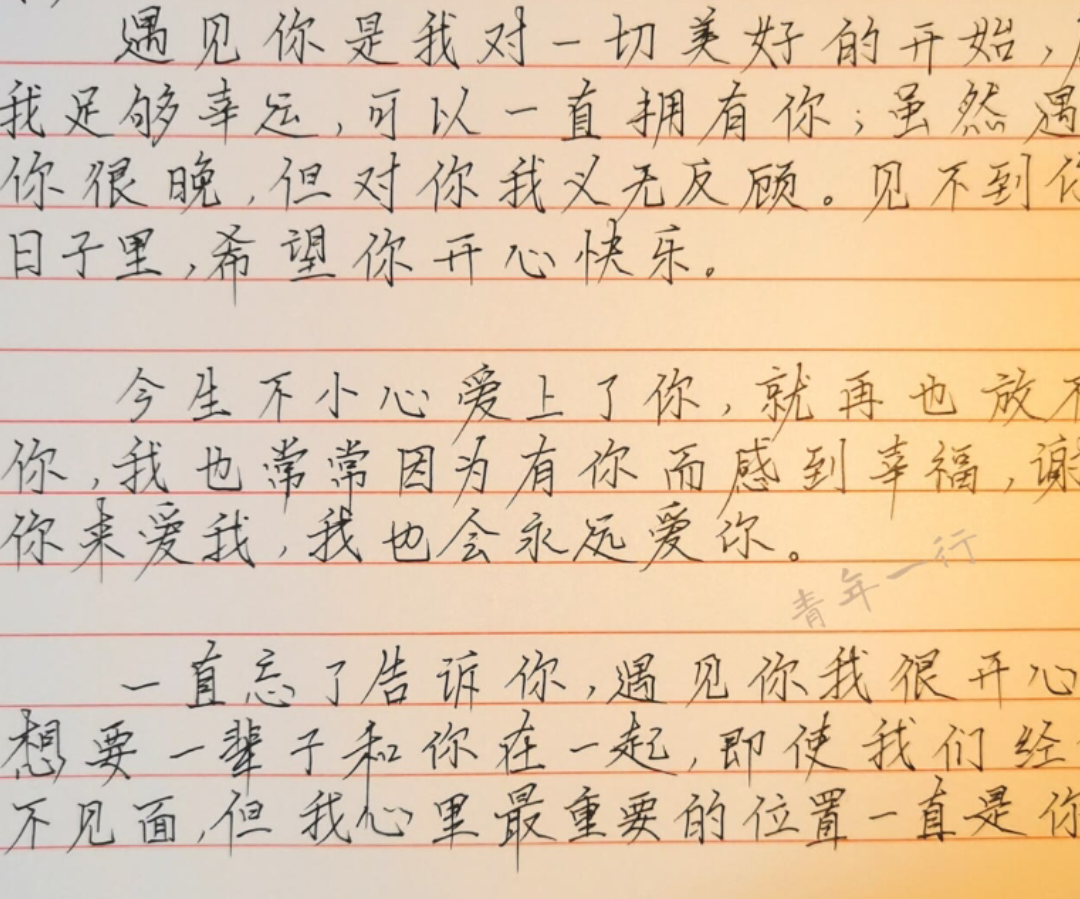 遇见你是我对一切美好的开始，
我足够幸运，可以一直拥有你；虽然遇
你很晚，但对你我义无反顾。见不到你
日子里，希望你开心快乐。
今生不小心爱上了你，就再也放不
你，我也常常因为有你而感到幸福，谢
你来爱我，我也会永远爱你。
青年一行
一直忘了告诉你，遇见你我很开心
想要一辈子和你在一起，即使我们经
不见面，但我心里最重要的位置一直是你